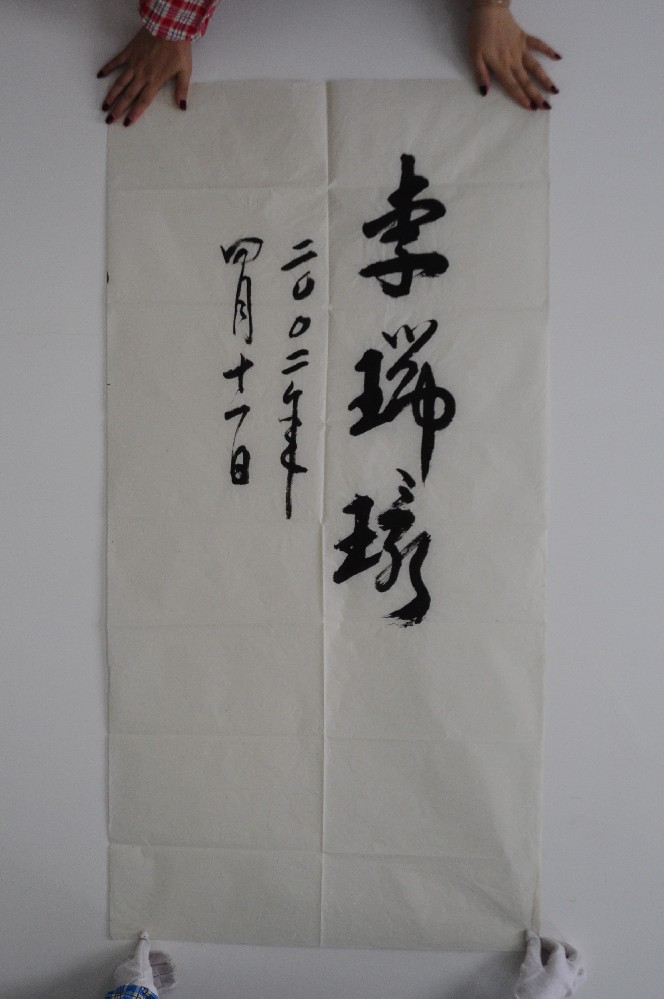 李瑞環
二〇〇二年
四月十一日